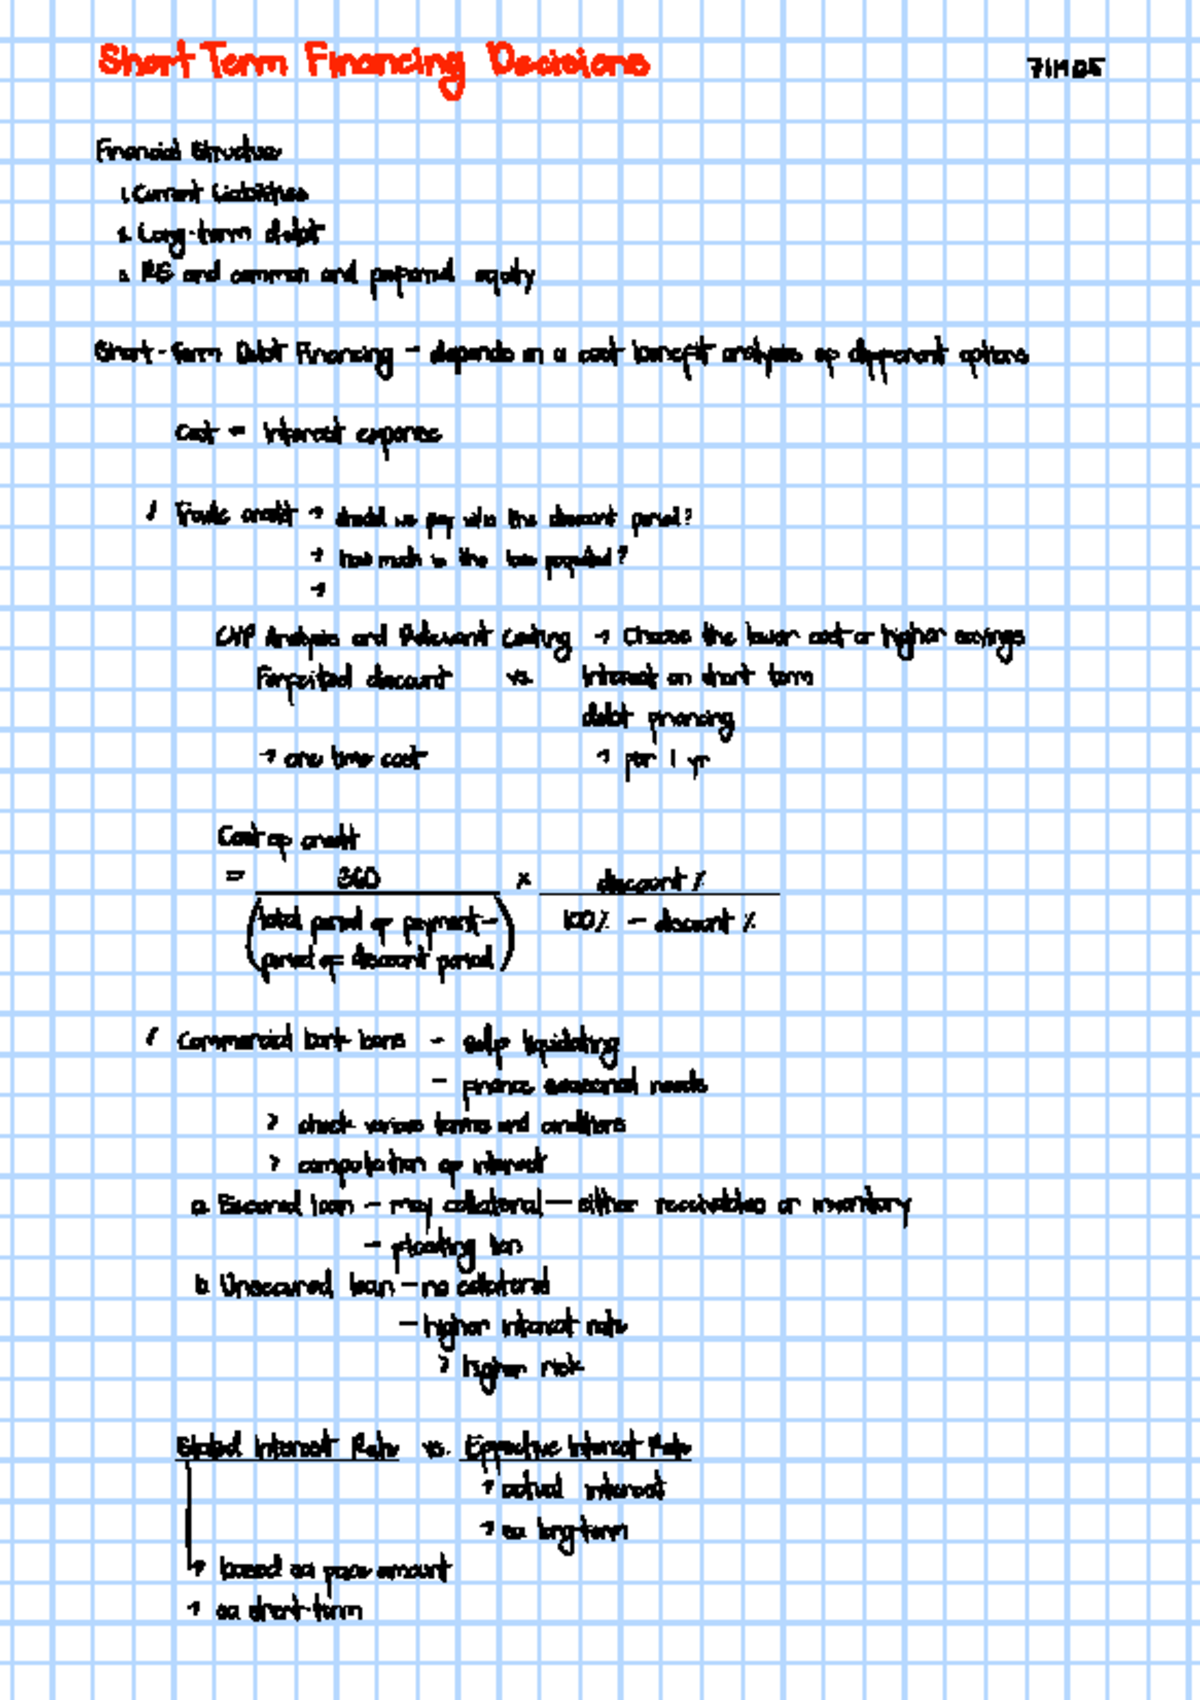 Short Term Financing Decisions
Financial Structure
1. Current Liabilities
2. Long-term debt
3. RE and common and preferred equity
Short-Term Debt Financing - depends on a cost benefit analysis of different options
Cost = interest expense
Trade credit → should we pay w/in the discount period?
→ how much is the loss
→
CVP Analysis and Relevant Costing → Choose the lower cost or higher savings
Forfeited discount vs. Interest on short term
debt financing
→ one time cost → for 1 yr
Cost of credit
= 360 × discount %
(total period of payment - period of discount period) 100% - discount %
Commercial bank loans - self liquidating
- finance seasonal needs
> check various terms and conditions
> computation of interest
a. Secured loan - may collateral - either receivables or inventory
- loan
b. Unsecured loan - no collateral
- higher interest rate
> higher risk
Stated Interest Rate vs. Effective Interest Rate
→ actual interest
→ sa long-term
→ based sa face amount
→ sa short-term